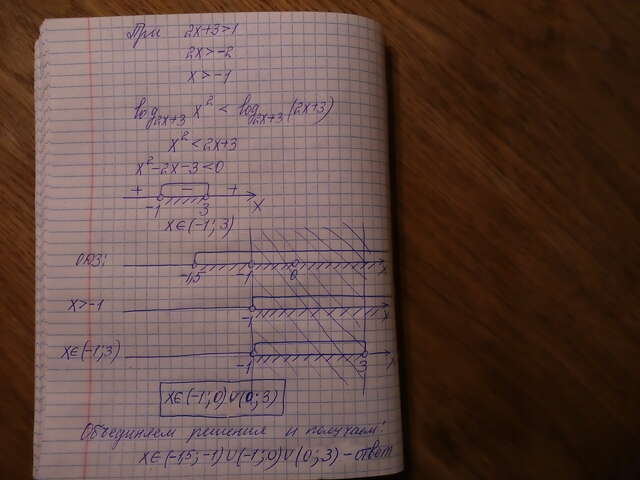 При 2x+3>1
2x>-2
x>-1
log₂ₓ₊₃ x² < log₂ₓ₊₃ (2x+3)
x² < 2x+3
x²-2x-3<0
+ - +
-1 3 x
x∈(-1; 3)
ОДЗ: -1,5 -1 0 x
x>-1 -1 x
x∈(-1; 3) -1 3 x
x∈(-1; 0)∪(0; 3)
Объединяем решения и получаем:
x∈(-1,5; -1)∪(-1; 0)∪(0; 3) - ответ